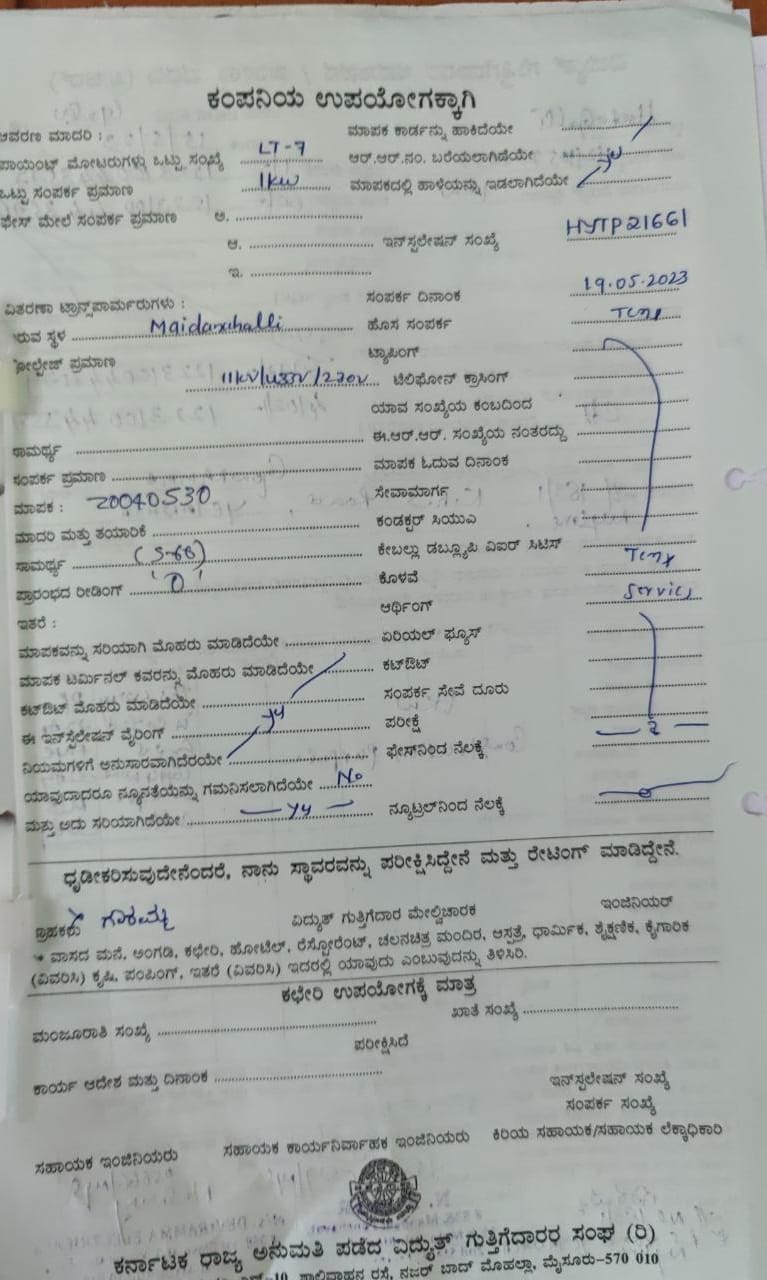 ಕಂಪನಿಯ ಉಪಯೋಗಕ್ಕಾಗಿ
ಆವರಣ ಮಾದರಿ : ಮಾಪಕ ಕಾರ್ಡನ್ನು ಹಾಕಿದೆಯೇ
ಪಾಯಿಂಟ್ ಮೋಟರುಗಳು ಒಟ್ಟು ಸಂಖ್ಯೆ LT-7 ಆರ್.ಆರ್.ನಂ. ಬರೆಯಲಾಗಿದೆಯೇ
ಒಟ್ಟು ಸಂಪರ್ಕ ಪ್ರಮಾಣ 1kw ಮಾಪಕದಲ್ಲಿ ಹಾಳೆಯನ್ನು ಇಡಲಾಗಿದೆಯೇ
ಫೇಸ್ ಮೇಲೆ ಸಂಪರ್ಕ ಪ್ರಮಾಣ ಅ.
ಆ. ಇನ್‌ಸ್ಟಲೇಷನ್ ಸಂಖ್ಯೆ HYTP21661
ಇ.
ವಿತರಣಾ ಟ್ರಾನ್ಸ್‌ಪಾರ್ಮರುಗಳು : ಸಂಪರ್ಕ ದಿನಾಂಕ 19.05.2023
ಇರುವ ಸ್ಥಳ Maidanahalli ಹೊಸ ಸಂಪರ್ಕ Temp
ವೋಲ್ಟೇಜ್ ಪ್ರಮಾಣ ಟ್ಯಾಪಿಂಗ್
11kv/433v/230v ಟೆಲಿಫೋನ್ ಕ್ರಾಸಿಂಗ್
ಯಾವ ಸಂಖ್ಯೆಯ ಕಂಬದಿಂದ
ಸಾಮರ್ಥ್ಯ ಈ.ಆರ್.ಆರ್. ಸಂಖ್ಯೆಯ ನಂತರದ್ದು
ಸಂಪರ್ಕ ಪ್ರಮಾಣ ಮಾಪಕ ಓದುವ ದಿನಾಂಕ
ಮಾಪಕ : 20040530 ಸೇವಾಮಾರ್ಗ
ಮಾದರಿ ಮತ್ತು ತಯಾರಿಕೆ ಕಂಡಕ್ಟರ್ ಸಿಯುಎ
ಸಾಮರ್ಥ್ಯ ಕೇಬಲ್ಲು ಡಬ್ಲ್ಯೂಪಿ ವಿಐರ್ ಸಿಟಿಸ್ Temp
ಪ್ರಾರಂಭದ ರೀಡಿಂಗ್ '0' ಕೊಳವೆ
ಇತರೆ : ಆರ್ಥಿಂಗ್ Service
ಮಾಪಕವನ್ನು ಸರಿಯಾಗಿ ಮೊಹರು ಮಾಡಿದೆಯೇ ಏರಿಯಲ್ ಫ್ಯೂಸ್
ಮಾಪಕ ಟರ್ಮಿನಲ್ ಕವರನ್ನು ಮೊಹರು ಮಾಡಿದೆಯೇ ಕಟ್‌ಔಟ್
ಕಟ್‌ಔಟ್ ಮೊಹರು ಮಾಡಿದೆಯೇ ಸಂಪರ್ಕ ಸೇವೆ ದೂರು
ಈ ಇನ್‌ಸ್ಟಲೇಷನ್ ವೈರಿಂಗ್ ಪರೀಕ್ಷೆ
ನಿಯಮಗಳಿಗೆ ಅನುಸಾರವಾಗಿದೆರೆಯೇ ಫೇಸ್‌ನಿಂದ ನೆಲಕ್ಕೆ
ಯಾವುದಾದರೂ ನ್ಯೂನತೆಯನ್ನು ಗಮನಿಸಲಾಗಿದೆಯೇ No
ಮತ್ತು ಅದು ಸರಿಯಾಗಿದೆಯೇ ನ್ಯೂಟ್ರಲ್‌ನಿಂದ ನೆಲಕ್ಕೆ
ಧೃಡೀಕರಿಸುವುದೇನೆಂದರೆ, ನಾನು ಸ್ಥಾವರವನ್ನು ಪರೀಕ್ಷಿಸಿದ್ದೇನೆ ಮತ್ತು ರೇಟಿಂಗ್ ಮಾಡಿದ್ದೇನೆ.
ಗ್ರಾಹಕರು ವಿದ್ಯುತ್ ಗುತ್ತಿಗೆದಾರ ಮೇಲ್ವಿಚಾರಕ ಇಂಜಿನಿಯರ್
* ವಾಸದ ಮನೆ, ಅಂಗಡಿ, ಕಛೇರಿ, ಹೋಟೆಲ್, ರೆಸ್ಟೋರೆಂಟ್, ಚಲನಚಿತ್ರ ಮಂದಿರ, ಆಸ್ಪತ್ರೆ, ಧಾರ್ಮಿಕ, ಶೈಕ್ಷಣಿಕ, ಕೈಗಾರಿಕ
(ವಿವರಿಸಿ) ಕೃಷಿ, ಪಂಪಿಂಗ್, ಇತರೆ (ವಿವರಿಸಿ) ಇದರಲ್ಲಿ ಯಾವುದು ಎಂಬುವುದನ್ನು ತಿಳಿಸಿರಿ.
ಕಛೇರಿ ಉಪಯೋಗಕ್ಕೆ ಮಾತ್ರ
ಮಂಜೂರಾತಿ ಸಂಖ್ಯೆ ಖಾತೆ ಸಂಖ್ಯೆ
ಪರೀಕ್ಷಿಸಿದೆ
ಕಾರ್ಯ ಆದೇಶ ಮತ್ತು ದಿನಾಂಕ
ಇನ್‌ಸ್ಟಲೇಷನ್ ಸಂಖ್ಯೆ
ಸಂಪರ್ಕ ಸಂಖ್ಯೆ
ಸಹಾಯಕ ಇಂಜಿನಿಯರು ಸಹಾಯಕ ಕಾರ್ಯನಿರ್ವಾಹಕ ಇಂಜಿನಿಯರು ಕಿರಿಯ ಸಹಾಯಕ/ಸಹಾಯಕ ಲೆಕ್ಕಾಧಿಕಾರಿ
ಕರ್ನಾಟಕ ರಾಜ್ಯ ಅನುಮತಿ ಪಡೆದ ವಿದ್ಯುತ್ ಗುತ್ತಿಗೆದಾರರ ಸಂಘ (ರಿ)
ಶಾಲಿವಾಹನ ರಸ್ತೆ, ನಜರ್ ಬಾದ್ ಮೊಹಲ್ಲಾ, ಮೈಸೂರು-570 010